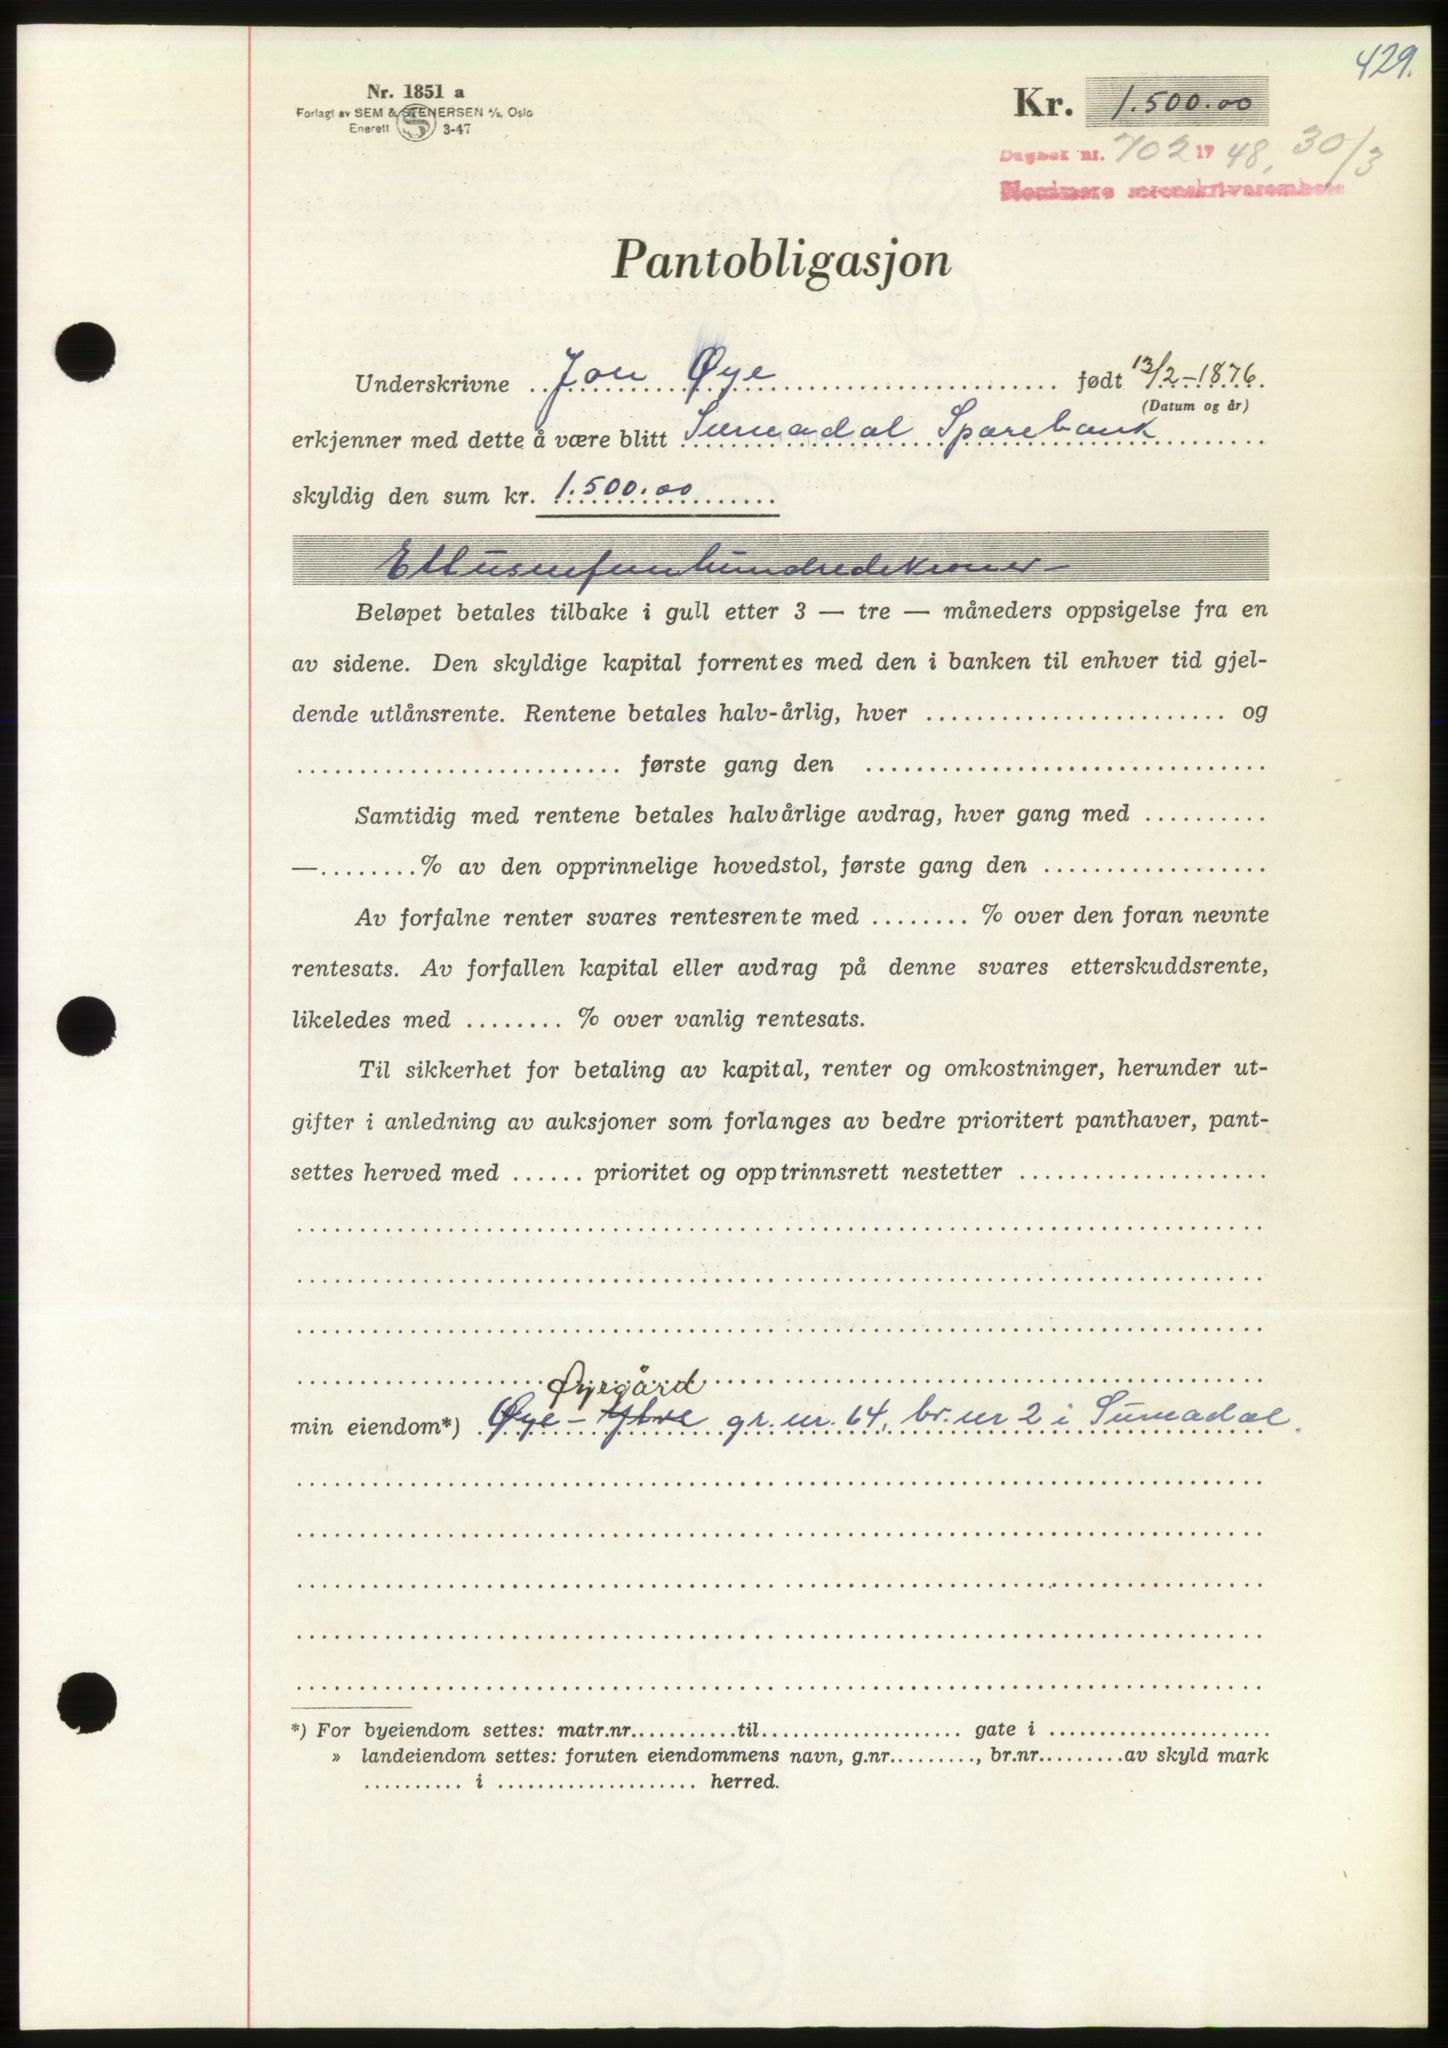 429.
Nr. 1851 a
Forlagt av SEM & STENERSEN A/S, Oslo
Enerett 3-47
Kr. 1.500.00
Dagbok nr. 702 19 48, 30/3
Nordmøre sorenskriverembete
Pantobligasjon
Underskrivne Jon Øye født 13/2-1876.
(Datum og år)
erkjenner med dette å være blitt Surnadal Sparebank
skyldig den sum kr. 1.500.00
Ettusenfemhundredekroner —
Beløpet betales tilbake i gull etter 3 — tre — måneders oppsigelse fra en
av sidene. Den skyldige kapital forrentes med den i banken til enhver tid gjel-
dende utlånsrente. Rentene betales halv-årlig, hver ........................ og
.......................... første gang den ................................
Samtidig med rentene betales halvårlige avdrag, hver gang med ..........
—........% av den opprinnelige hovedstol, første gang den ..................
Av forfalne renter svares rentesrente med ........ % over den foran nevnte
rentesats. Av forfallen kapital eller avdrag på denne svares etterskuddsrente,
likeledes med ........ % over vanlig rentesats.
Til sikkerhet for betaling av kapital, renter og omkostninger, herunder ut-
gifter i anledning av auksjoner som forlanges av bedre prioritert panthaver, pant-
settes herved med ...... prioritet og opptrinnsrett nestetter ....................
Øyegård
min eiendom*) Øye - Ytre gr. nr. 64, br. nr 2 i Surnadal.
*) For byeiendom settes: matr.nr...........til..................... gate i .......................
» landeiendom settes: foruten eiendommens navn, g.nr........., br.nr.........av skyld mark
.......... i .................... herred.